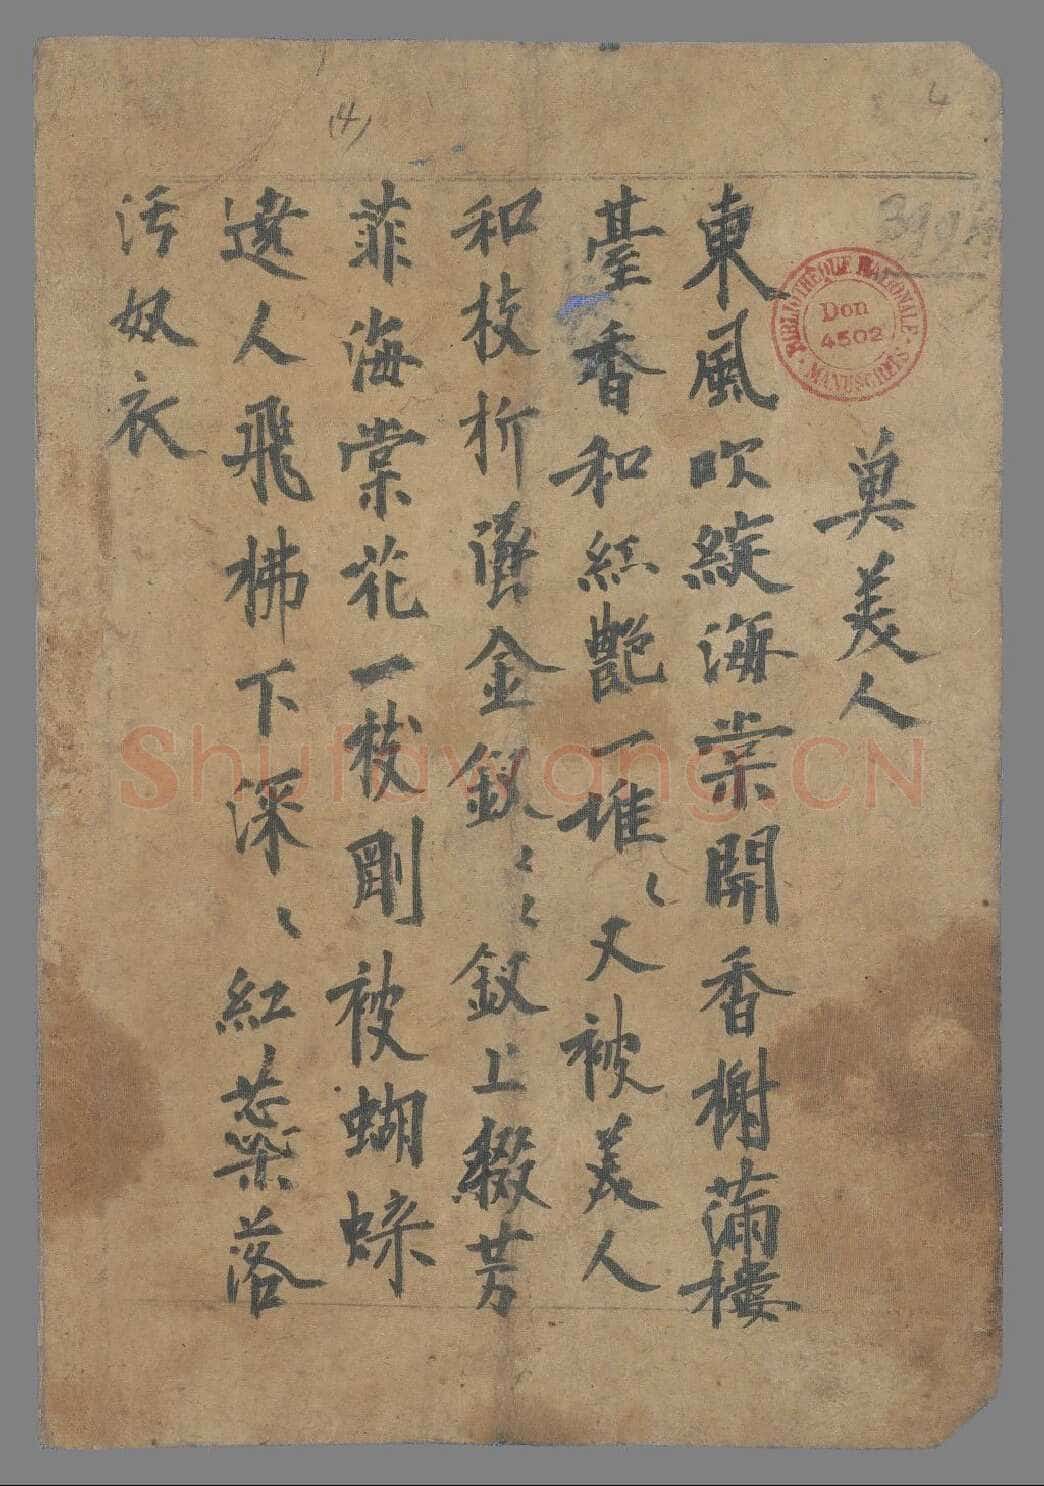 奠美人
東風吹綻海棠開香榭滿樓
臺香和紅艷一堆〻又被美人
和枝折墜金釵〻〻釵上綴芳
菲海棠花一枝剛被蝴蝶
遶人飛拂下深〻紅蕊落
污奴衣
(4)
BIBLIOTHÈQUE NATIONALE
Don
4502
MANUSCRITS
Shufawang.CN